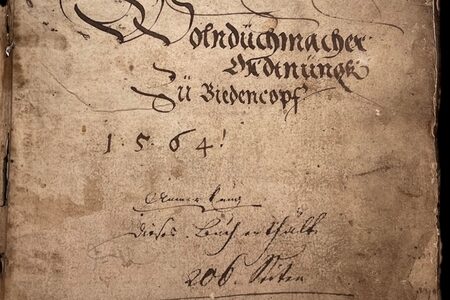 Wolndüchmacher
Ordinüngk
Zü Biedencopf
1·5·6·4!
Anmerkung
Dieses Buch enthält
206. Seiten